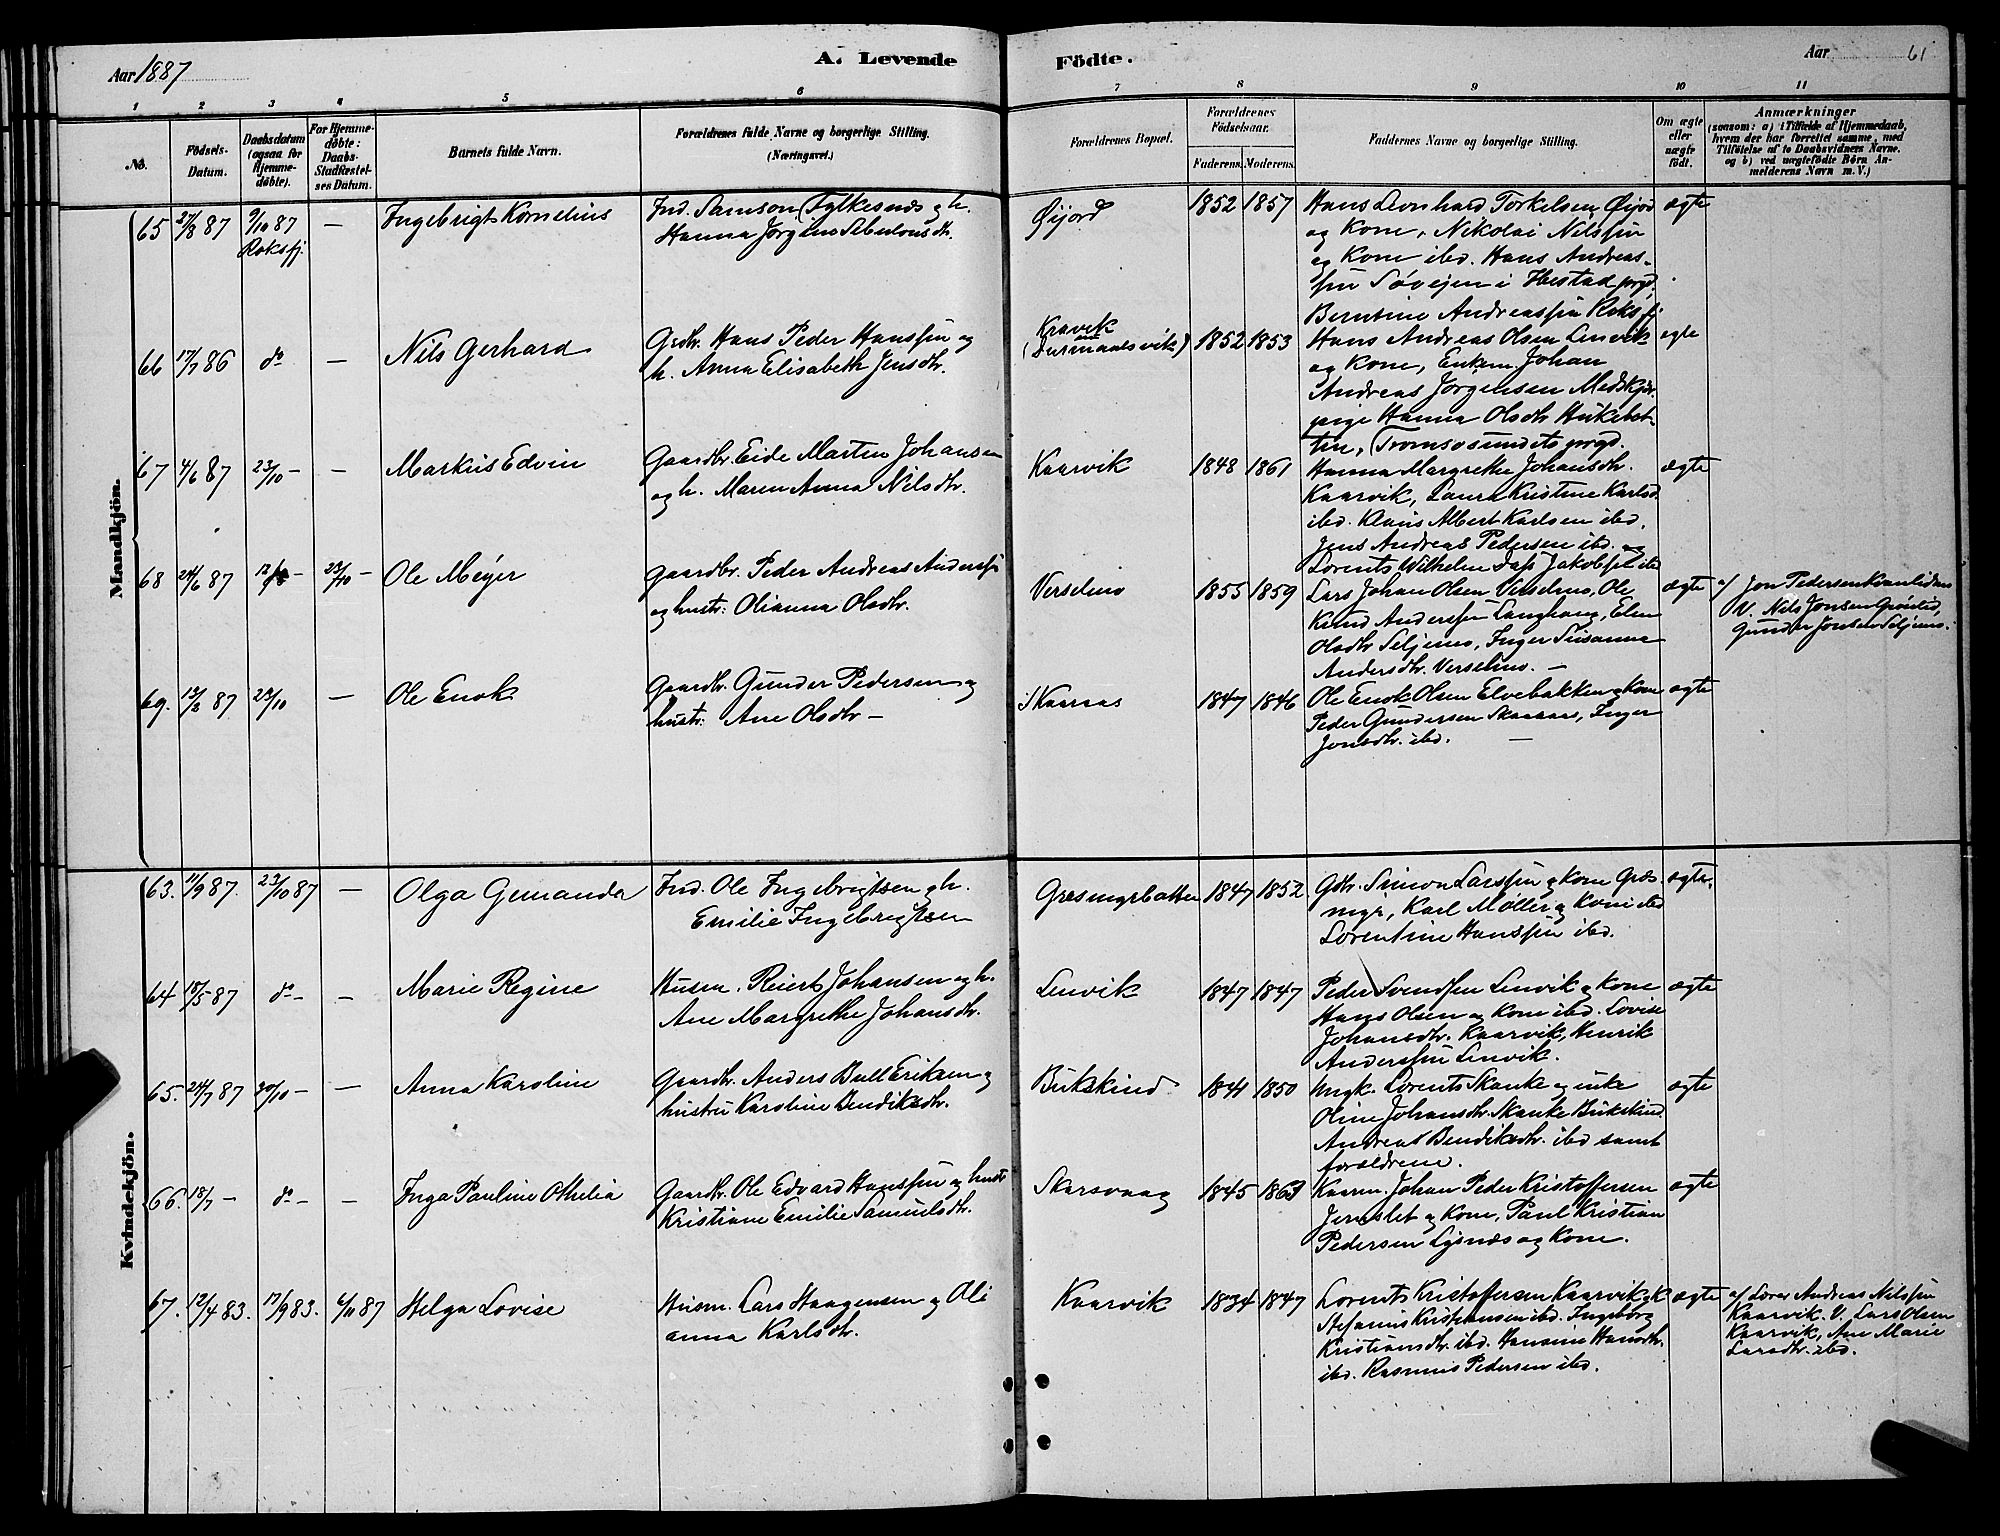 Aar 1887
A. Levende
Födte.
Aar 61
1 2 3 4 5 6 7 8 9 10 11
No.
Födsels-
Datum.
Daabsdatum
(ogsaa for
Hjemme-
döbte).
For Hjemme-
döbte:
Daabs-
Stadfæstel-
ses Datum.
Barnets fulde Navn.
Forældrenes fulde Navne og borgerlige Stilling.
(Næringsvei.)
Forældrenes Bopæl.
Forældrenes
Födselsaar.
Faderens. Moderens.
Faddernes Navne og borgerlige Stilling.
Om ægte
eller
uægte
födt.
Anmærkninger
(saasom: a) i Tilfælde af Hjemmedaab,
hvem der har forrettet samme, med
Tilföielse af to Daabsvidners Navne.
og b) ved uægtefödte Börn An-
melderens Navn m. V.)
Mandkjön.
65 27/8 87 9/10 87 — Ingebrigt Kornelius
Roksfj.
Ind. Samson Fylkesnæs og h.
Hanna
Øijord 1852 1857
Hans Leonhard Torkelsen Øijord
og Kone, Nikolai Nilssen
og Kone ibd. Hans Andreas-
sen Søvejen i Ibestad prgd.
Berntine Andreassen Roksfj.
ægte
66 17/7 86 do — Nils Gerhard
Grdbr. Hans Peder Hanssen og
h. Anna Elisabeth Jensdtr.
Kravik
1852 1853
Hans Andreas Olsen Lenvik
og Kone, Enkem. Johan
Andreas Jørgensen Medskjær,
pige Hanna Olsdtr
Tromsøsundets prgd.
ægte
67 4/6 87 23/10 — — Markus Edvin
Gaardbr. Eide Martin Johansen
og h. Maren Anna Nilsdtr.
Kaarvik 1848 1861
Hanna Margrethe Johansdtr.
Kaarvik, Laura Kristine Karlsd.
ibd. Klaus Albert Karlsen ibd,
Jens Andreas Pedersen ibd. og
Lorents Wilhelm Jakobsen ibd
ægte
68 24/6 87 23/10 — Ole Meyer
Gaardbr. Peder Andreas Anderssen
og hustr: Olianna Olsdtr.
Verselmo 1855 1859
Lars Johan Olsen Verselmo, Ole
Knud Anderssen Langhaug, Elen
Olsdtr Seljemo, Inger Susanna
Andersdtr. Verselmo. —
ægte
af Jon Pedersen Kvanlidmo
V. Nils Jonsen Grønlid,
Gunder Jonsen Seljemo.
69. 13/2 87 23/10 — Ole Enok
Gaardbr. Gunder Pedersen og
hustr: Ane Olsdtr —
Skaaraas 1847 1846
Ole Enok Olsen Elvebakken og Kone
Peder Gundersen Skaaraas, Inger
Jonsdtr. ibd. —
ægte
Kvindekjön.
63. 11/9 87. 23/10 87 — Olga Gemanda
Ind. Ole Ingebrigtsen og h.
Emilie Ingebrigtsen
Græsmyrbakken 1847 1852
Gbr. Simon Larssen og Kone Græs-
myr, Karl Møller og Kone ibd
Lorentine Hanssen ibd.
ægte.
64 18/5 87 do — — Marie Regine
Husm. Reiert Johansen og h.
Ane Margrethe Johansdtr.
Lenvik 1847 1847
Peder Svendsen Lenvik og Kone
Hans Olsen og Kone ibd. Lovise
Johansdtr. Kaarvik, Henrik
Anderssen Lenvik.
ægte
65. 24/7 87 30/10 — — Anna Karoline
Gaardbr. Anders Bull Eriksen og
hustru Karoline Bendiksdtr.
Bukskind 1841 1850
Ungk. Lorents Skanke og enke
Oline Johansdtr. Skanke Bukskind.
Andrea Bendiksdtr. ibd samt
forældrene.
ægte
66. 18/7 — do — — Inga Pauline Othelia
Gaardbr. Ole Edvard Hanssen og hustr
Kristiane Emilie Samuelsdtr.
Skarsvaag 1845 1861
Kaarm. Johan Peder Kristoffersen
Jernslet og Kone, Paul Kristian
Pedersen Lysnæs og Kone.
ægte
67. 12/4 83. 17/9 83. 6/11 87 Helga Lovise
Husm. Lars Haagensen og Oli
anna Karlsdtr.
Kaarvik 1834 1847
Lorents Kristoffersen Kaarvik,
Stefanus Kristiansen ibd. Ingeborg
Kristiansdtr. ibd. Hansine Hansdtr.
ibd. Rasmus Pedersen ibd.
ægte
af Lærer Andreas Nilssen
Kaarvik. V. Lars Olsen
Kaarvik, Ane Marie
Larsdtr. ibd.